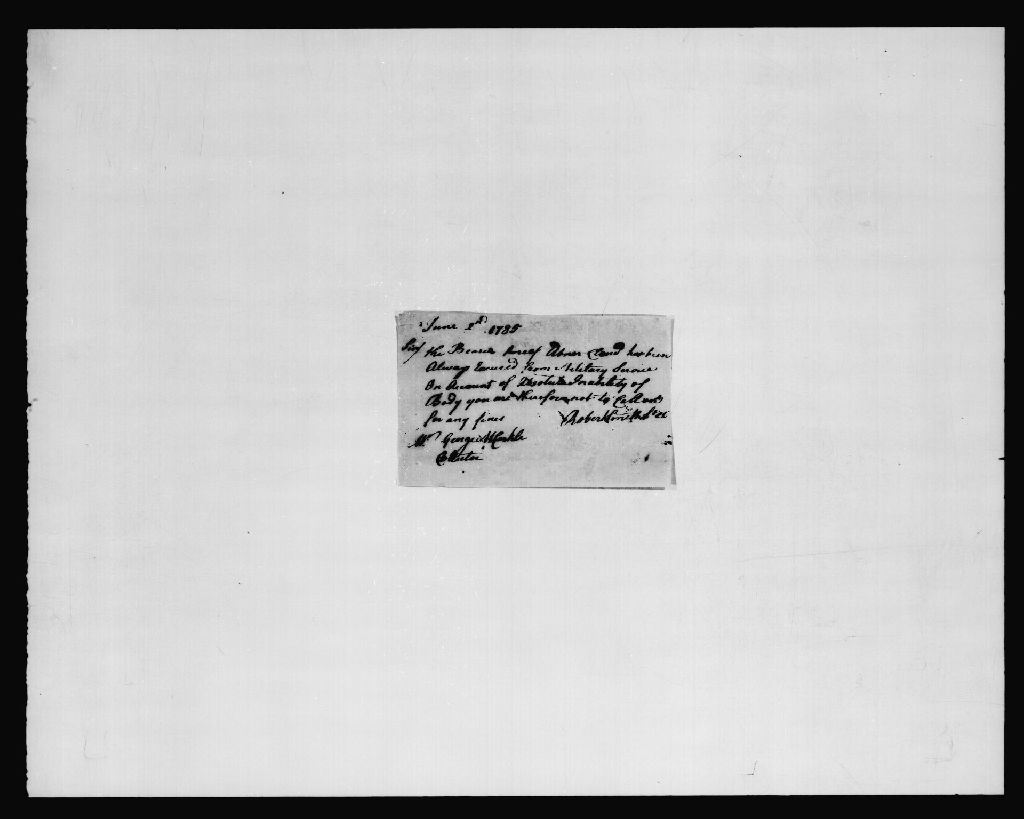 June 2d 1785
Sir/ the Bearer hereof Abner has been
Always Excused from Military Service
On Account of Absolute Inability of
Body you are therefore not to Call on
for any fines Robert
Mr George
Collector